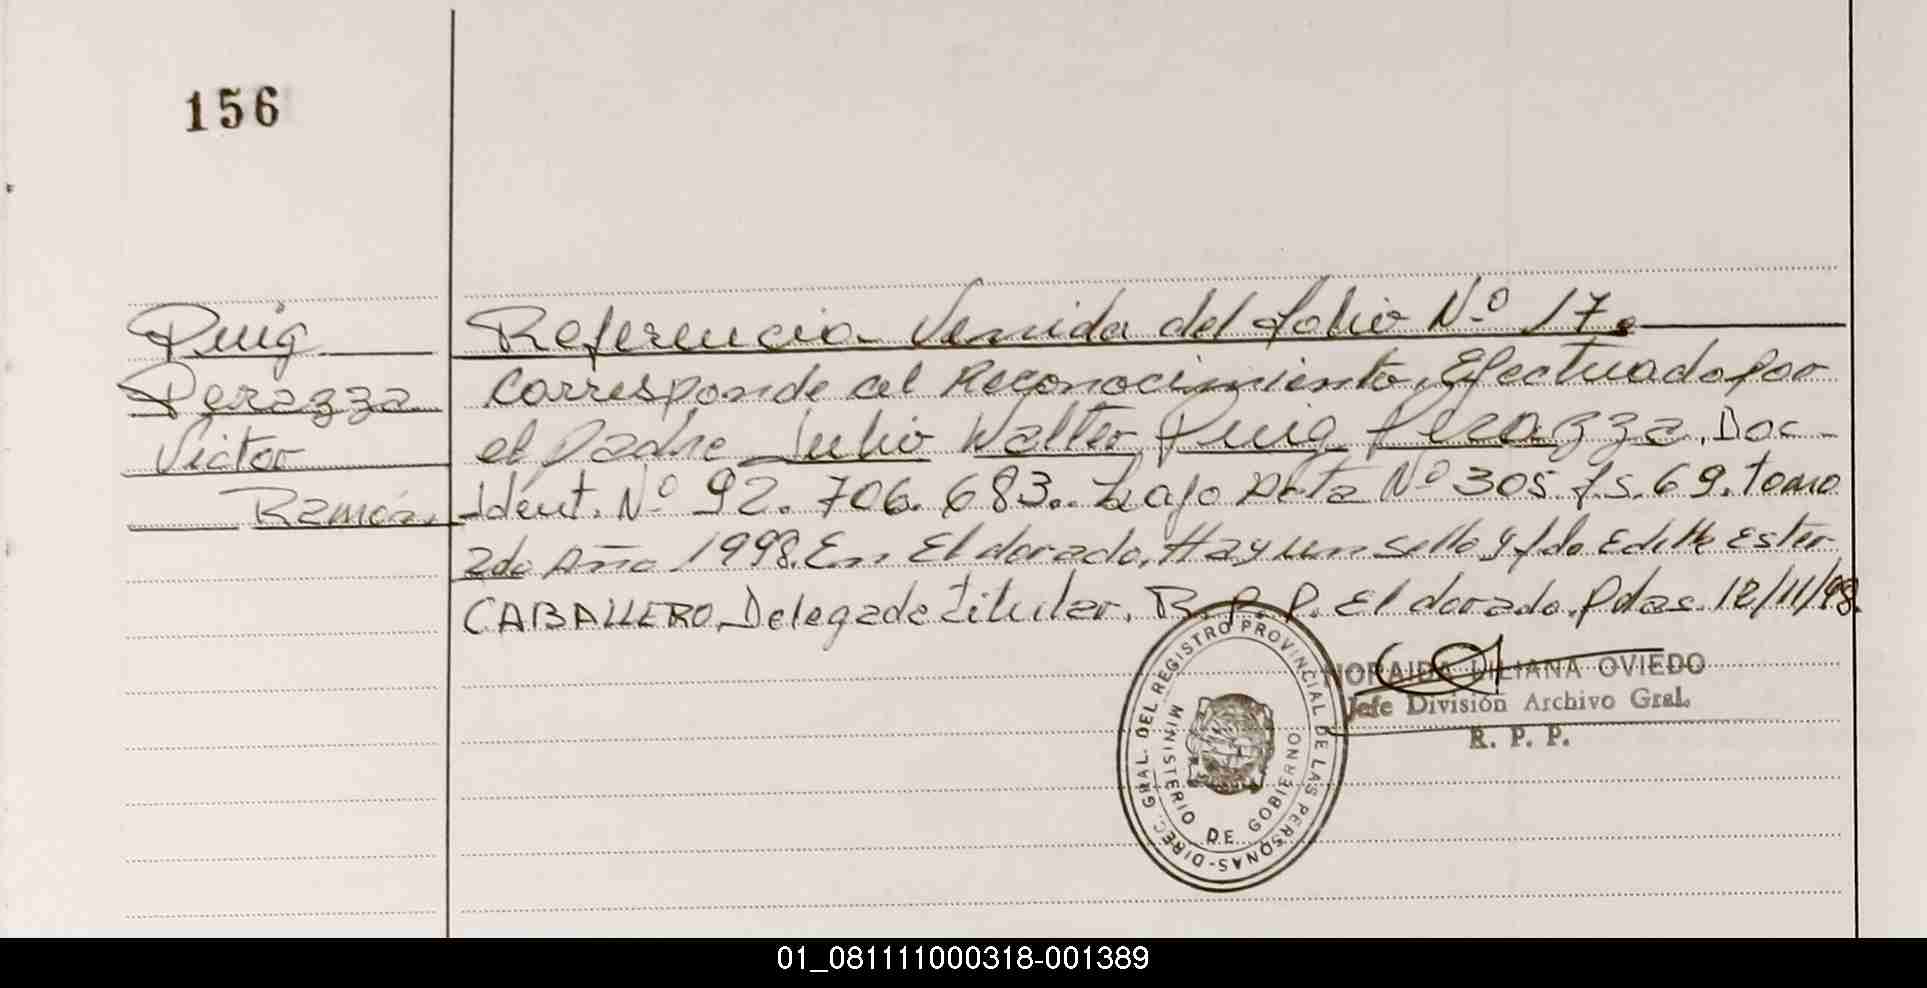 156
Puig
Perazza
Victor
Ramón
Referencia Venida del folio N.º 17.
Corresponde al Reconocimiento, Efectuado por
el padre Julio Walter Puig Perazza. Doc-
Ident. Nº 92.706.683.. bajo Acta Nº 305 fs. 69. tomo
2do Año 1998. En Eldorado. Hay un sello y fdo Edith Ester
CABALLERO. Delegada titular. R. P. P. Eldorado. Pdas. 12/11/98.
DIREC. GRAL. DEL REGISTRO PROVINCIAL DE LAS PERSONAS-
MINISTERIO DE GOBIERNO
NORAIDA LILIANA OVIEDO
Jefe División Archivo Gral.
R. P. P.
01_081111000318-001389